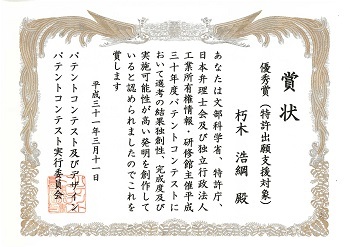 賞状
優秀賞（特許出願支援対象）
朽木 浩綱 殿
あなたは文部科学省、特許庁、
日本弁理士会及び独立行政法人
工業所有権情報・研修館主催平成
三十年度パテントコンテストに
おいて選考の結果独創性、完成度及び
実施可能性が高い発明を創作して
いると認められましたのでこれを
賞します
平成三十一年三月十一日
パテントコンテスト及びデザイン
パテントコンテスト実行委員会